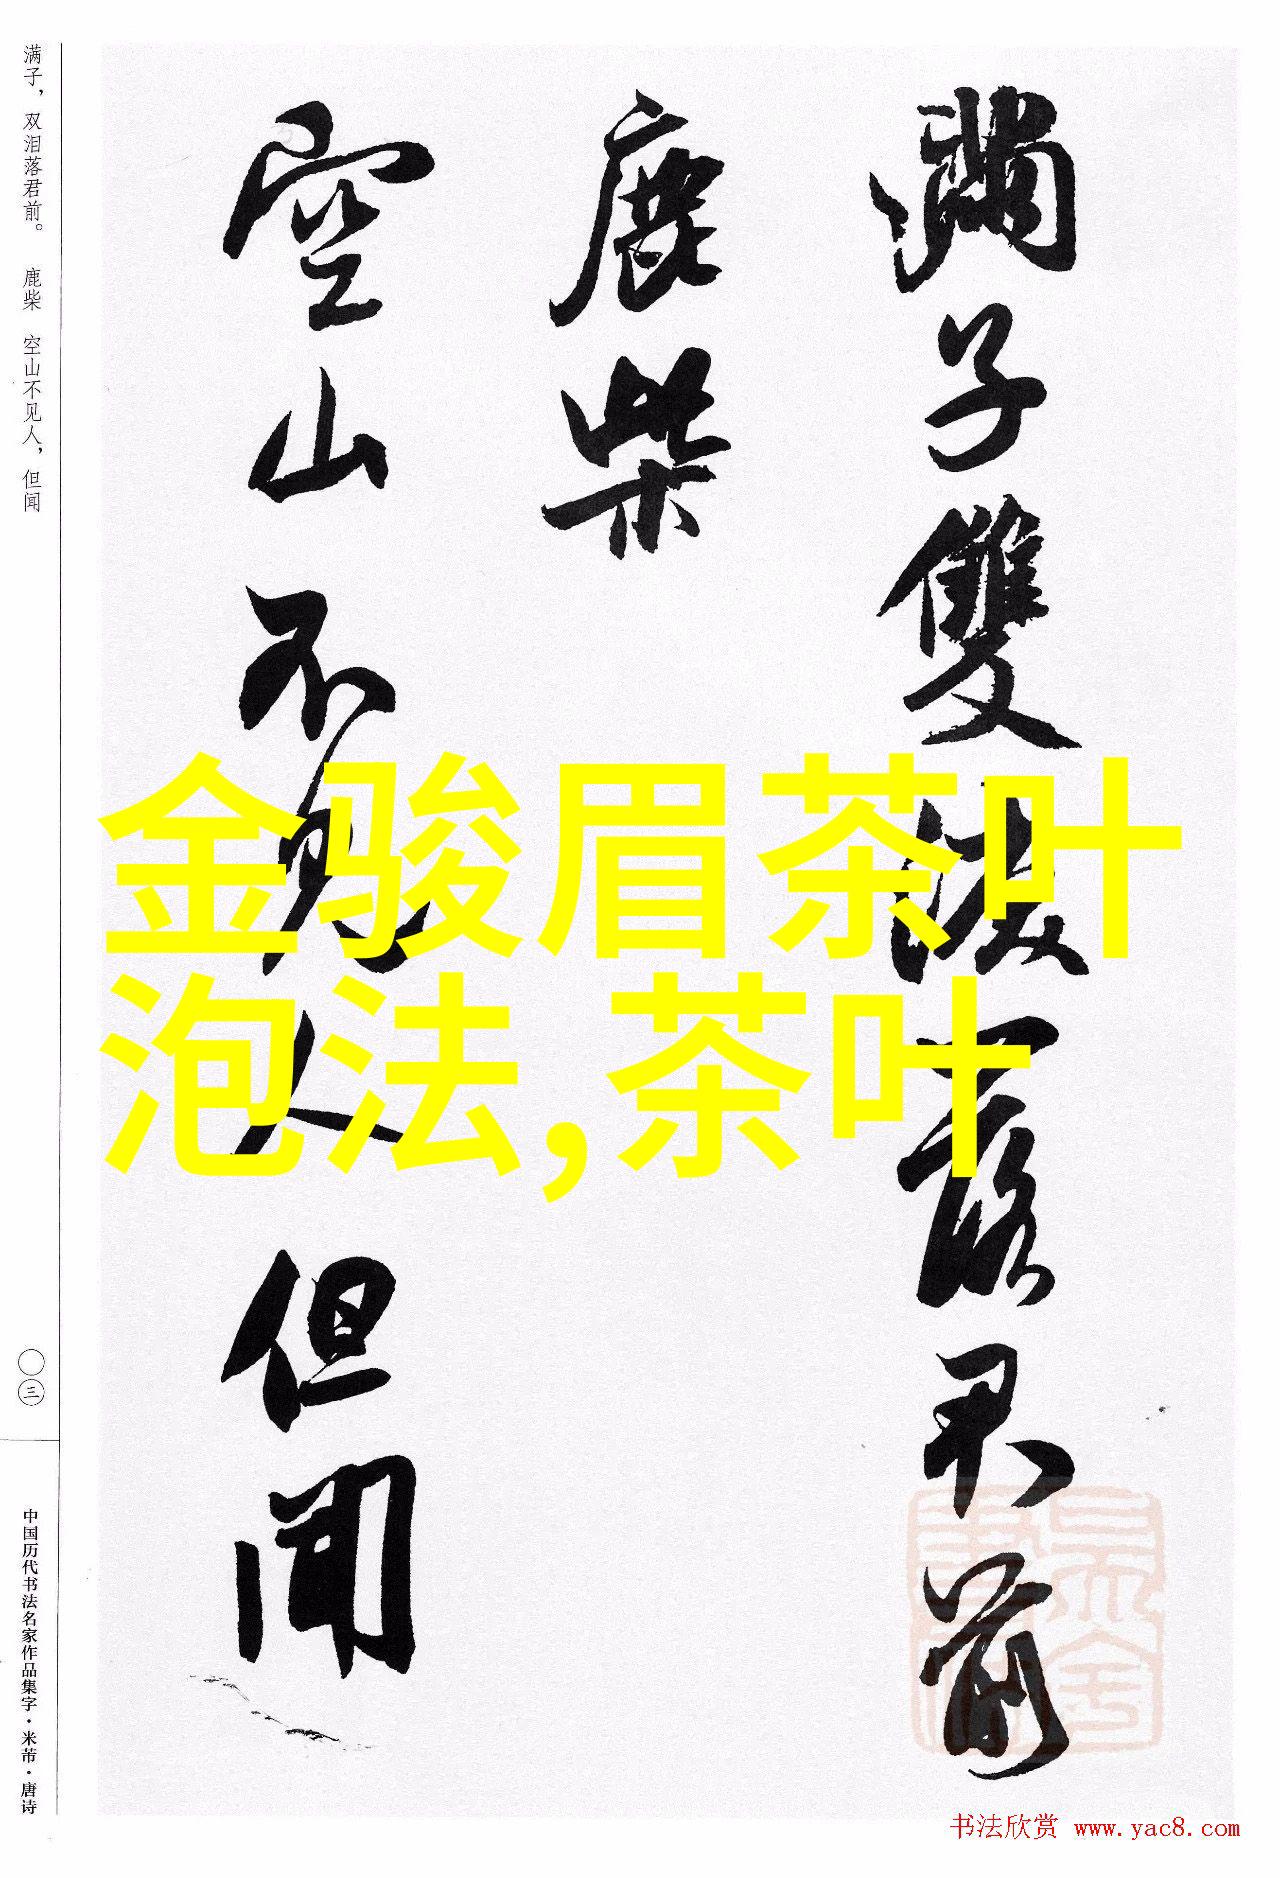 满子，双泪落君前。 鹿柴 空山不见人，但闻
滿子雙淚落君前
鹿柴
空山不見人但聞
金骏眉茶叶
泡法,茶叶
〇三
中国历代书法名家作品集字·米芾·唐诗
书法欣赏 www.yac8.com